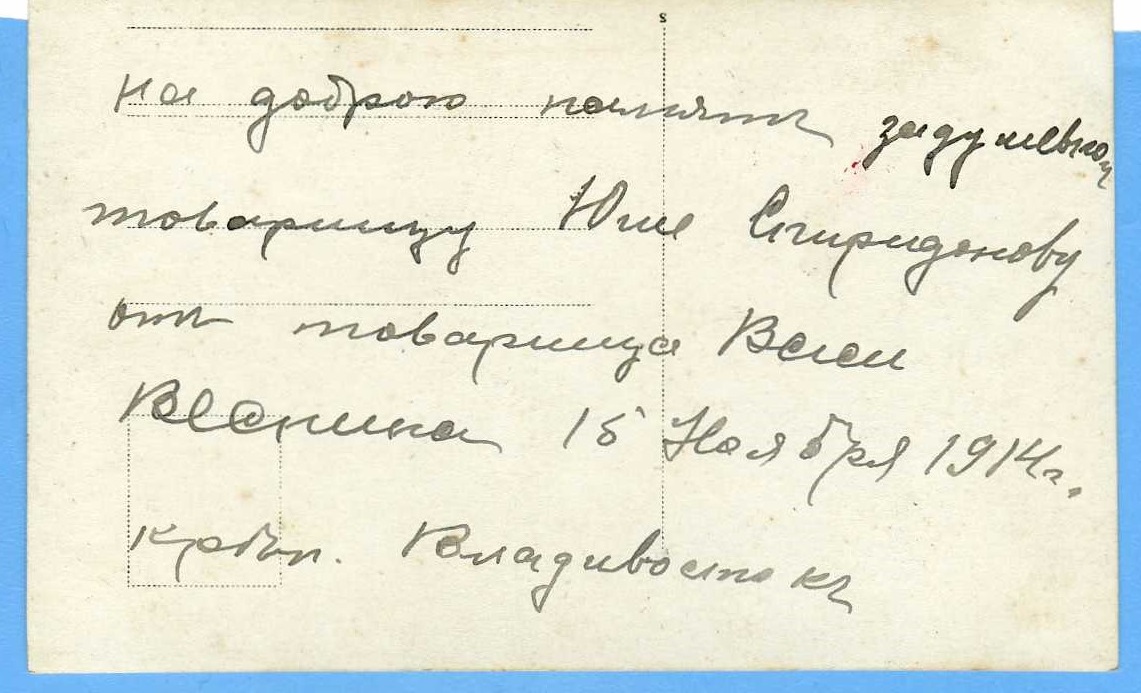 на доброю память задушевном
товарищу Юше Спиридонову
отъ товарища Васи
Веснина 15 Ноября 1914 г.
Крѣп. Владивостокъ